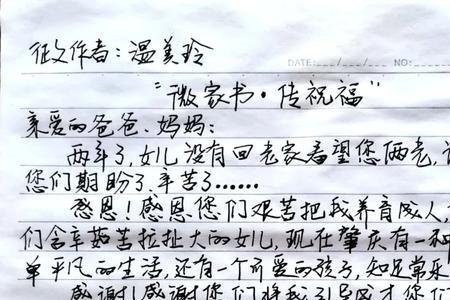 征文作者：温美玲
DATE: / / NO:
"微家书·传祝福"
亲爱的爸爸、妈妈：
两年了，女儿没有回老家看望您俩老，
您们期盼了，辛苦了……
感恩！感恩您们艰苦把我养育成人，
们含辛茹苦拉扯大的女儿，现在肇庆有一
单平凡的生活，还有一个可爱的孩子，知足常乐
感谢！感谢您们将我引导成才 您们